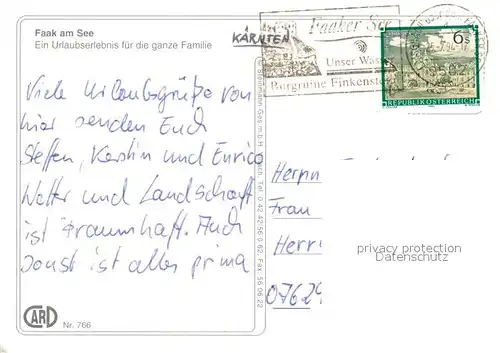 Faak am See
Ein Urlaubserlebnis für die ganze Familie
KÄRNTEN
Faaker See
Unser Was
Burgruine Finkenste
6s
REPUBLIK ÖSTERREICH
Viele Urlaubsgrüße von
hier senden Euch
Steffen, Kerstin und Enrico
Wetter und Landschaft
ist traumhaft. Auch
sonst ist alles prima
Herrn
Frau
Herr
0762
privacy protection
Datenschutz
CARD
Nr. 766